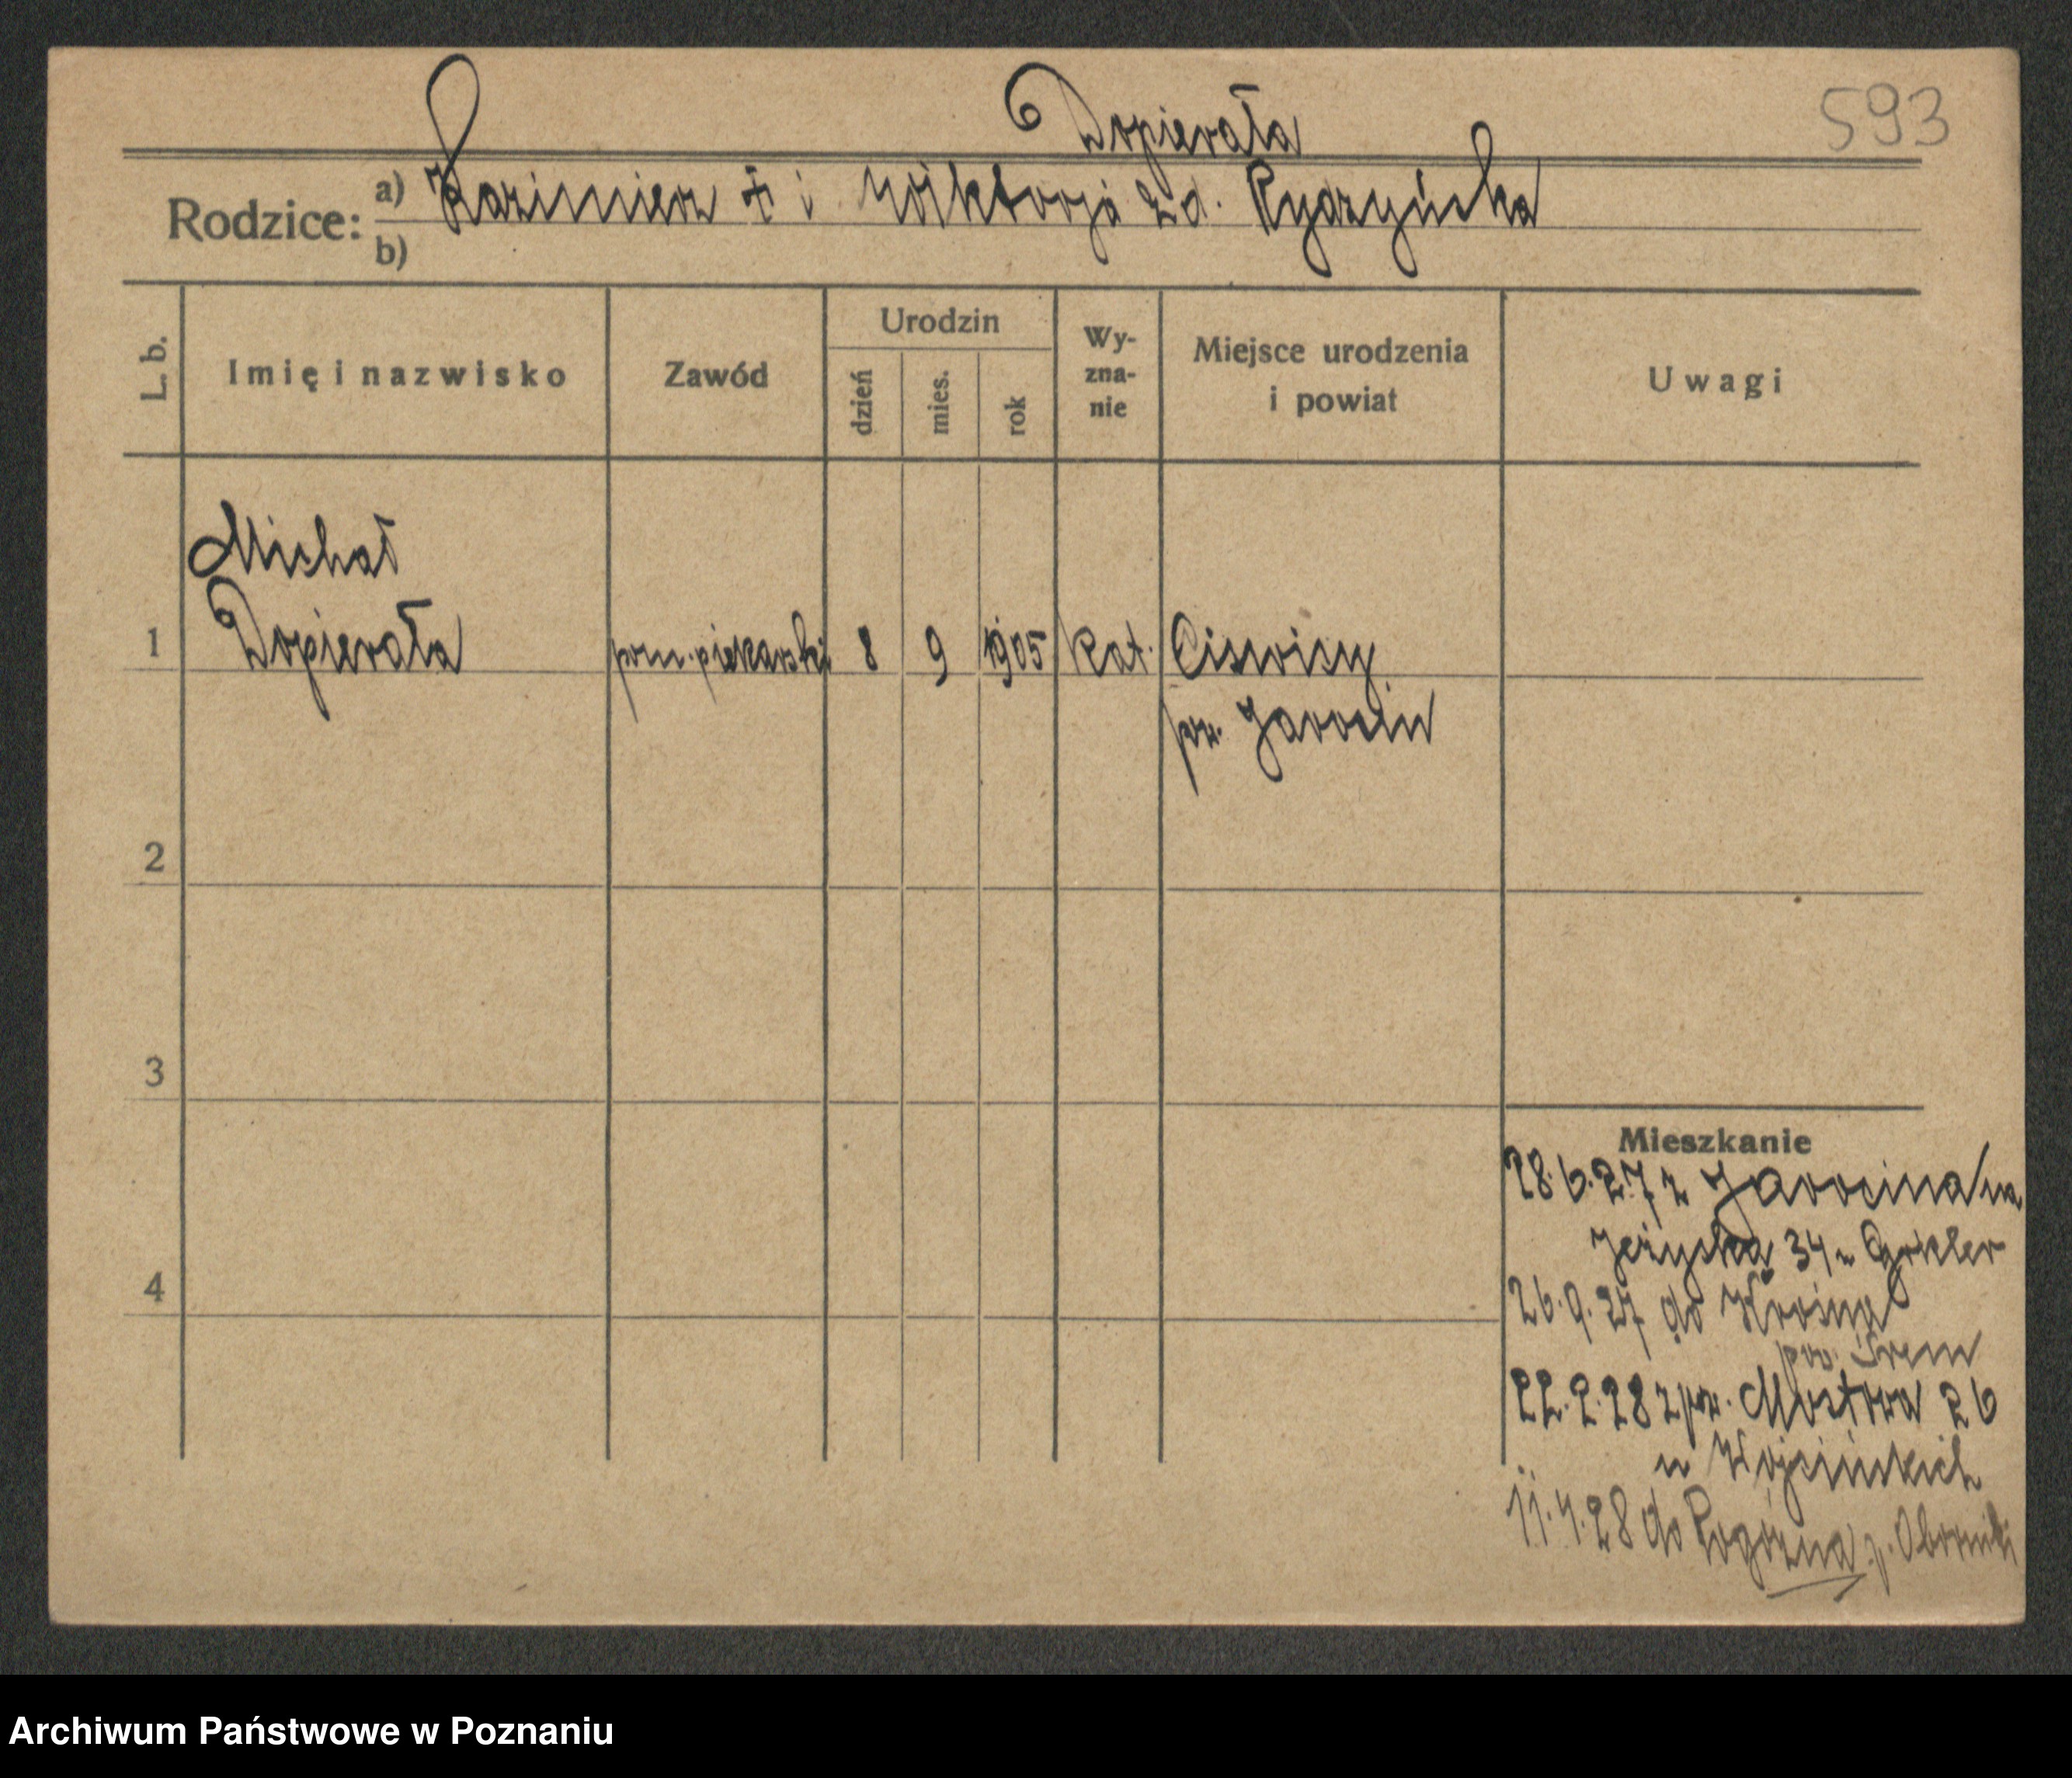 593
Dopierała
Rodzice: a) Kazimierz + i Wiktorja zd. Rydzyńska
b)
L. b. Imię i nazwisko Zawód Urodzin dzień mies. rok Wy-zna-nie Miejsce urodzenia i powiat Uwagi
Michał
1 Dopierała pom. piekarski 8 9 1905 kat. Ciświcy
pow. Jarocin
2
3
4
Mieszkanie
28.6.27 z Jarocina
Jeżycka 34
26.9.27 do
pow. Śrem
22.2.28 z pow. Mostowa 26
u Wojcińskich
11.4.28 do Rogoźna p. Oborniki
Archiwum Państwowe w Poznaniu